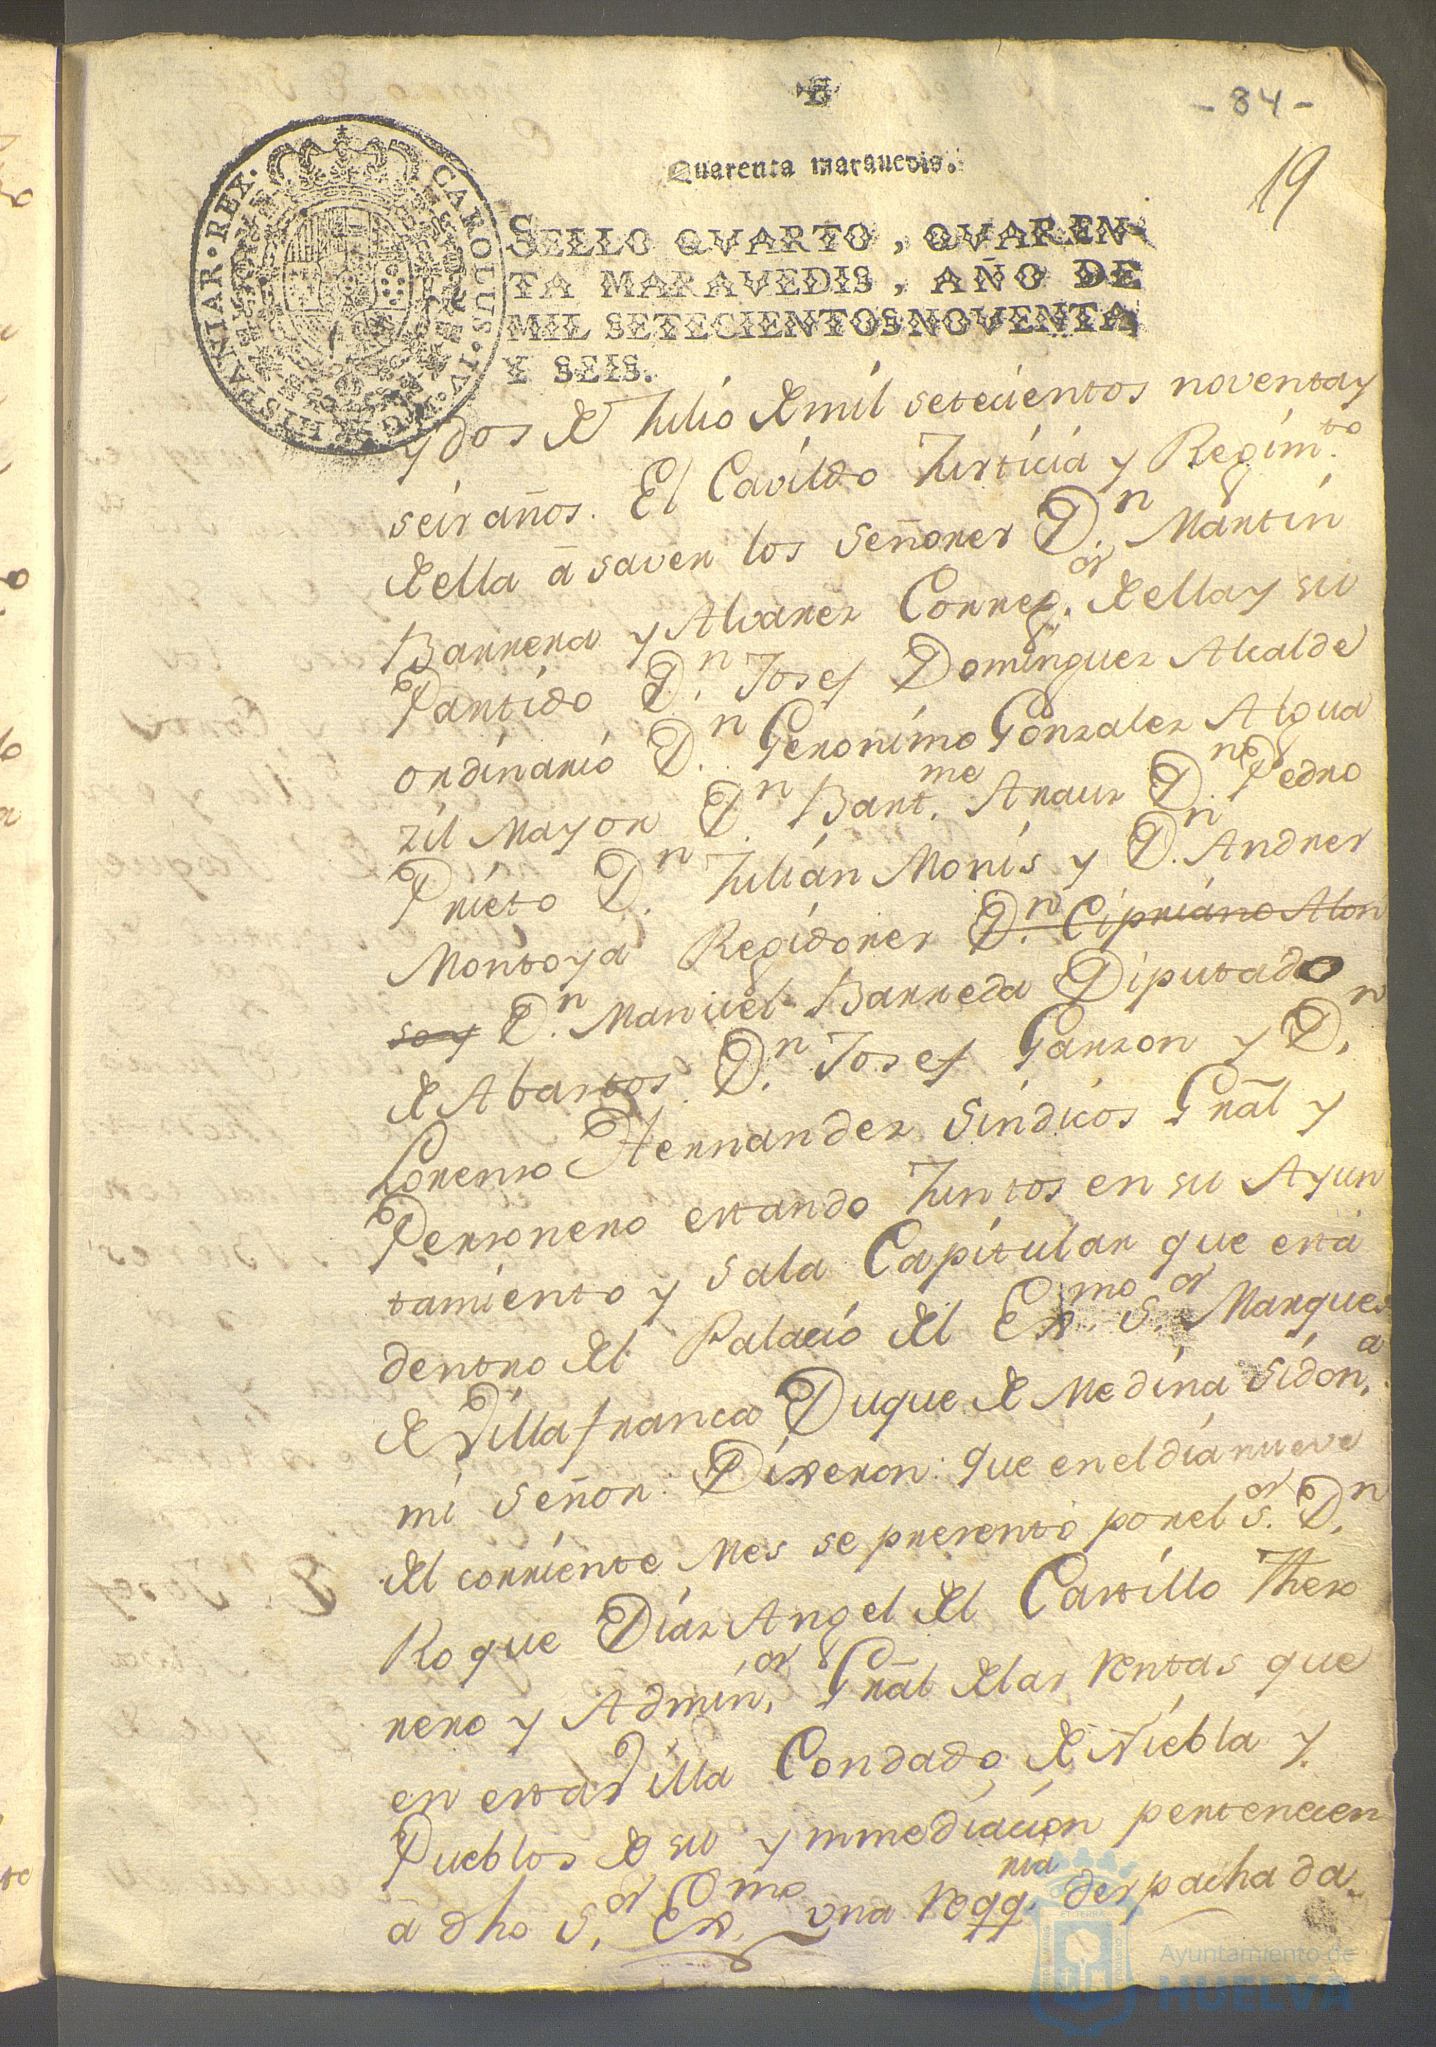 - 84 -
19
Quarenta maravedis.
SELLO QVARTO, QVAREN-
TA MARAVEDIS, AÑO DE
MIL SETECIENTOS NOVENTA
Y SEIS.
HISPANIAR·REX· CAROLUS·IV·D·G·
y dos de Julio de mil setecientos noventa y
seis años. El Cavildo Justicia y Regim.to
de ella â saver los Señores D.n Martin
Barrera y Alvarez Correg.or de ella y su
Partido D.n Josef Dominguez Alcalde
ordinario D.n Geronimo Gonzalez Algua
zil Mayor D.n Bart.me Arauz D.n Pedro
Prieto D.n Julián Monís y D.n Andres
Montoya Regidores D.n Cipriano Alon
so y D.n Manuel Barreda Diputado
de Abastos D.n Josef Garzon y D.n
Lorenzo Hernandez Síndicos Grãl y
Personero estando Juntos en su Ayun
tamiento y Sala Capitular que está
dentro del Palacio del Ex.mo S.or Marques
de Villafranca Duque de Medina Sidon.a
mi Señor. Dixeron: Que en el dia nueve
del corriente Mes se presentó por el S.or D.n
Roque Díaz Angel del Castillo Theso
rero y Admin.or Grãl de las rentas que
en esta Villa Condado de Niebla y
Pueblos de su ynmediación pertenecen
â dho S.or Ex.mo una reqq.ria despachada
Ayuntamiento de
HUELVA